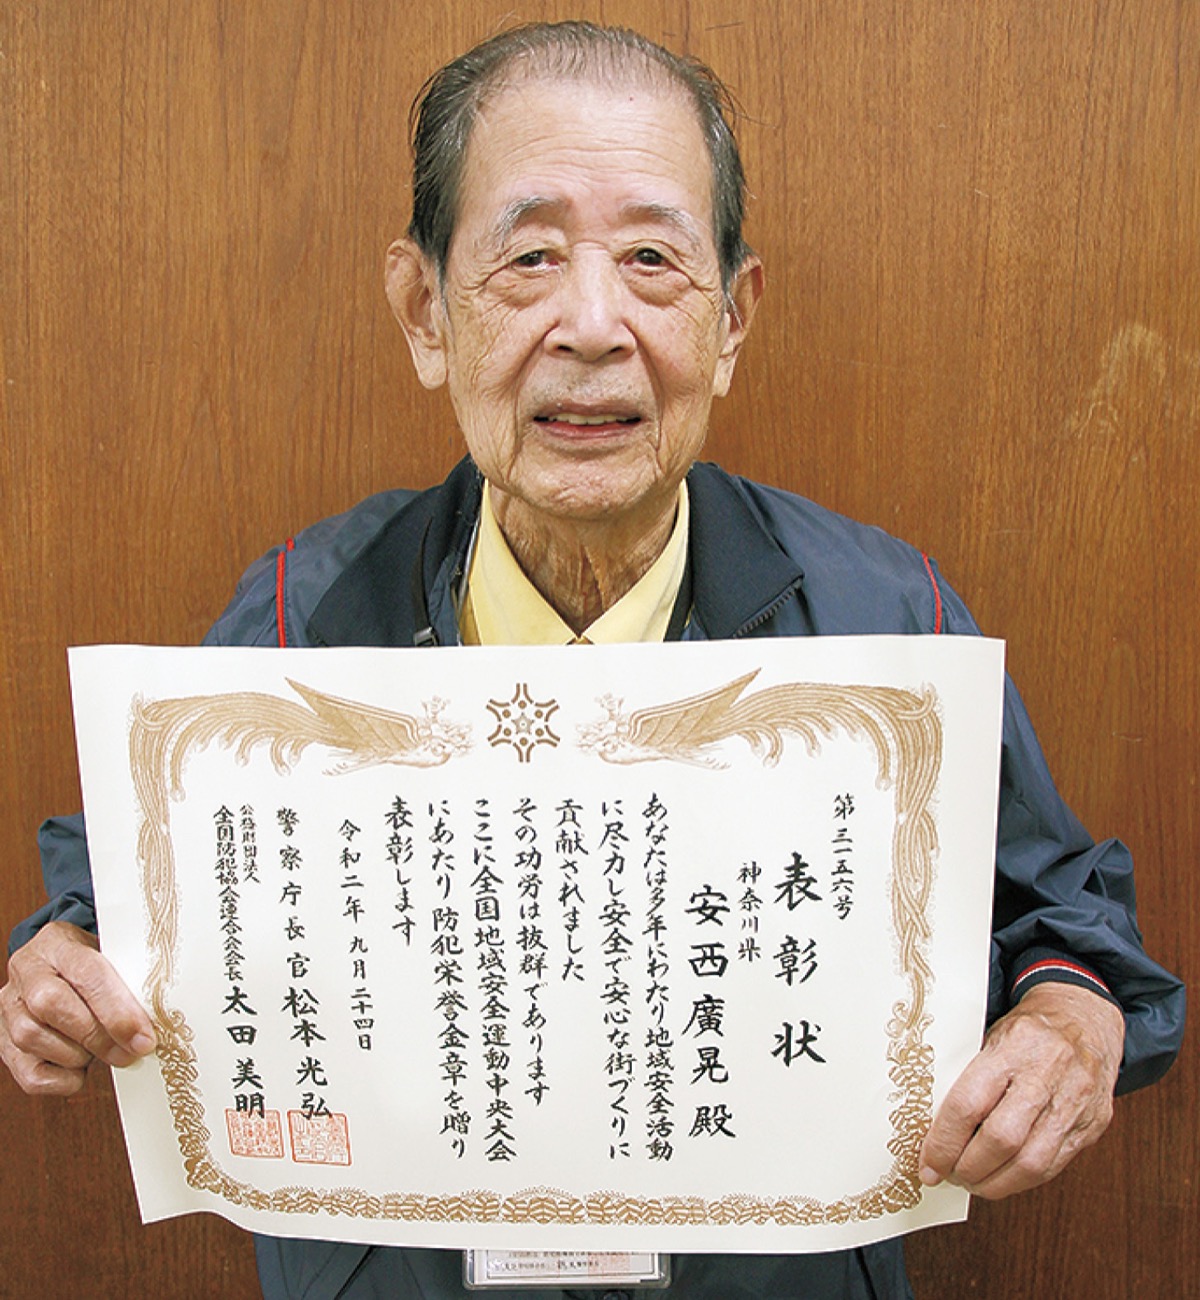 第三一五六号
表彰状
神奈川県
安西廣晃殿
あなたは多年にわたり地域安全活動
に尽力し安全で安心な街づくりに
貢献されました
その功労は抜群であります
ここに全国地域安全運動中央大会
にあたり防犯栄誉金章を贈り
表彰します
令和二年九月二十四日
警察庁長官 松本光弘
公益財団法人
全国防犯協会連合会会長 太田美明